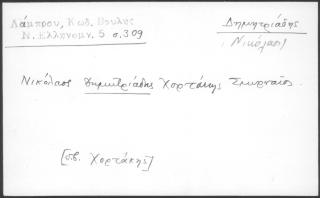 Λάμπρου, Κωδ. Βουλής
Ν. Ελληνομν. 5 σ.309
Δημητριάδης
Νικόλαος
Νικόλαος Δημητριάδης Χορτάκης Σμυρναῖος
[σβ. Χορτάκης]